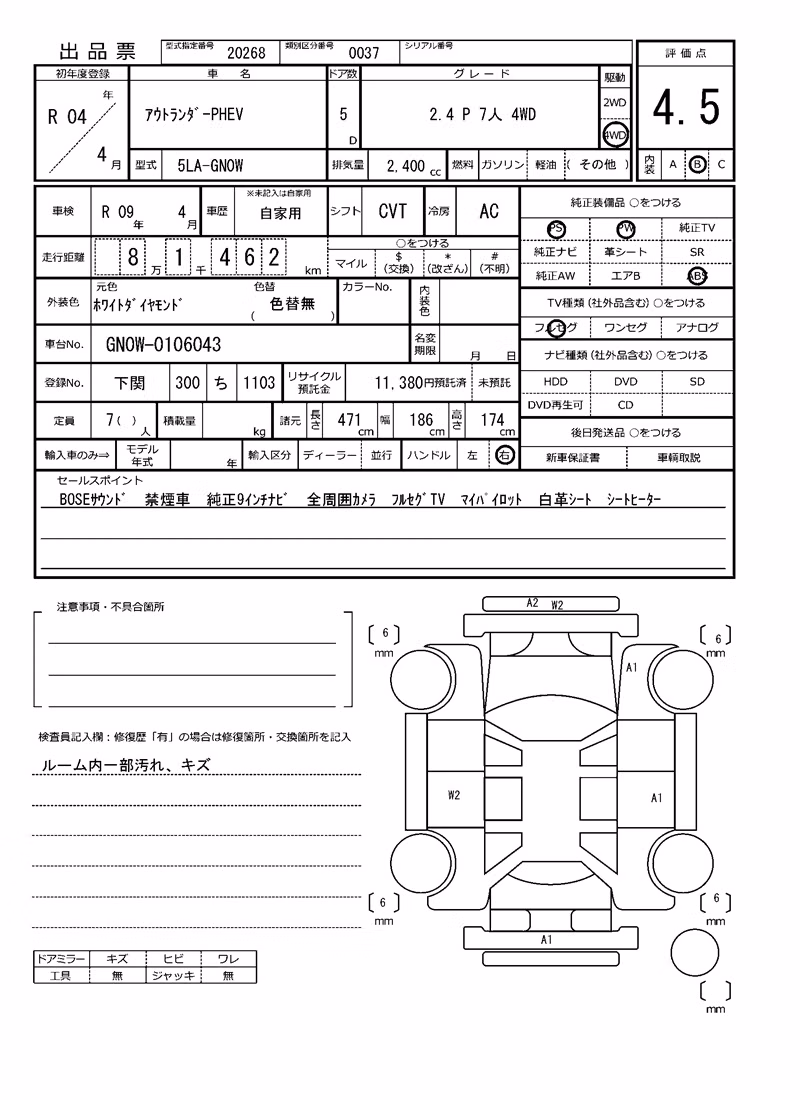 出品票 型式指定番号 20268 類別区分番号 0037 シリアル番号
評価点
初年度登録 車名 ドア数 グレード 駆動
R 04 年 4 月 アウトランダ゛-PHEV 5 D 2.4 P 7人 4WD 2WD 4WD
4.5
型式 5LA-GN0W 排気量 2,400 cc 燃料 ガソリン 軽油 ( その他 ) 内装 A B C
車検 R 09 年 4 月 車歴 ※未記入は自家用 自家用 シフト CVT 冷房 AC
走行距離 8 万 1 千 4 6 2 km ○をつける マイル $ (交換) * (改ざん) # (不明)
外装色 元色 ホワイトダイヤモンド 色替 ( 色替無 ) カラーNo. 内装色
車台No. GN0W-0106043 名変期限 月 日
登録No. 下関 300 ち 1103 リサイクル預託金 11,380円預託済 未預託
定員 7( ) 人 積載量 kg 諸元 長さ 471 cm 幅 186 cm 高さ 174 cm
輸入車のみ⇒ モデル年式 年 輸入区分 ディーラー 並行 ハンドル 左 右
純正装備品 ○をつける
PS PW 純正TV
純正ナビ 革シート SR
純正AW エアB ABS
TV種類 (社外品含む) ○をつける
フルセグ ワンセグ アナログ
ナビ種類 (社外品含む) ○をつける
HDD DVD SD
DVD再生可 CD
後日発送品 ○をつける
新車保証書 車輌取説
セールスポイント
BOSEサウンド 禁煙車 純正9インチナビ 全周囲カメラ フルセグTV マイパイロット 白革シート シートヒーター
注意事項・不具合箇所
検査員記入欄：修復歴「有」の場合は修復箇所・交換箇所を記入
ルーム内一部汚れ、キズ
ドアミラー キズ ヒビ ワレ
工具 無 ジャッキ 無
A2 W2
6 mm
6 mm
A1
W2
A1
6 mm
6 mm
A1
mm